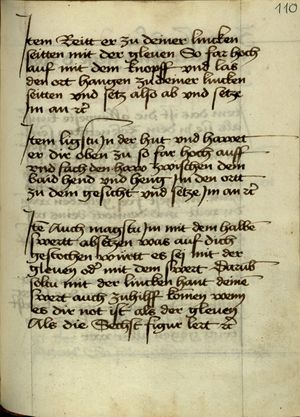 110
Item Reitt er zu deiner lincken
seitten mit der gleuen So far hoch
auf mit dem knopff vnd las
den ort hangen zu deiner lincken
seitten vnd setz also ab vnd setze
im an rc
Item ligstu In der hut vnd
er dir oben zu so far hoch auff
vnd zwischen dem
baid hend vnd heng Im den ortt
zu dem gesicht vnd setze Im an rc
Ite Auch magstu Im mit dem halbe
swertt absetzen was auf dich
gestochen wirtt es sej mit der
gleuen od mit dem swert Darub
soltu mit der lincken hant deine
swert auch zuhilff komen wenn
es dir not ist als der gleuen
Als die Sechst figur lert rc